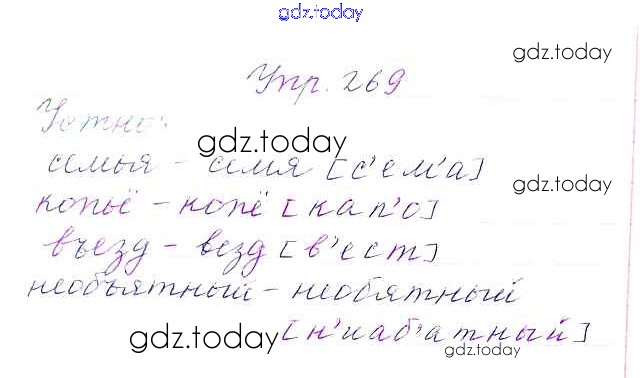 gdz.today
gdz.today
Упр. 269
Устно:
gdz.today
семья - семя [с'ем'а]
gdz.today
копьё - копё [кап'о]
въезд - везд [в'ест]
необъятный - необятный
gdz.today
[н'иаб'атный]
gdz.today